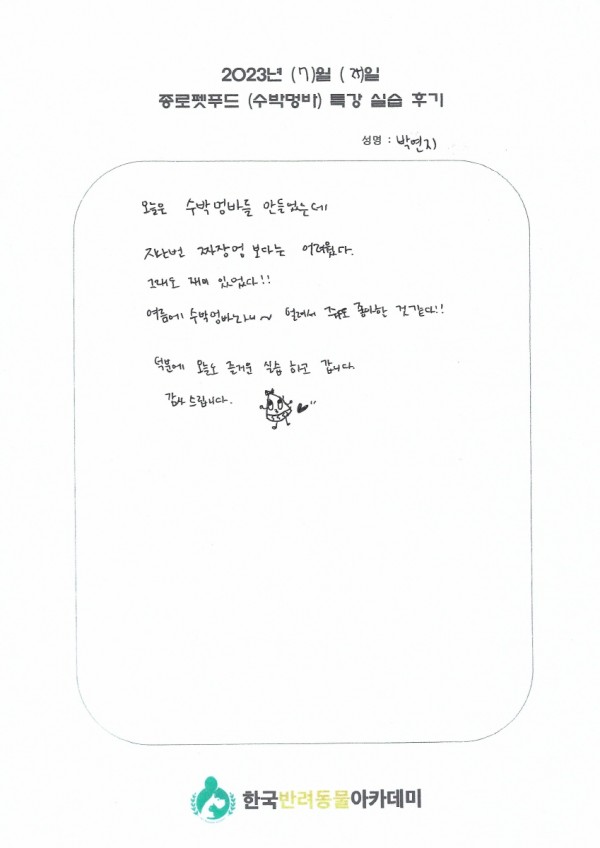 2023년 (7)월 (25)일
종로펫푸드 (수박멍바) 특강 실습 후기
성명 : 박연지
오늘은 수박멍바를 만들었는데
지난번 짜장멍 보다는 어려웠다.
그래도 재미 있었다!!
여름에 수박멍바라니~ 멍래서 좋아한 것 같다!!
덕분에 오늘도 즐거운 실습 하고 갑니다.
감사드립니다.
한국반려동물아카데미